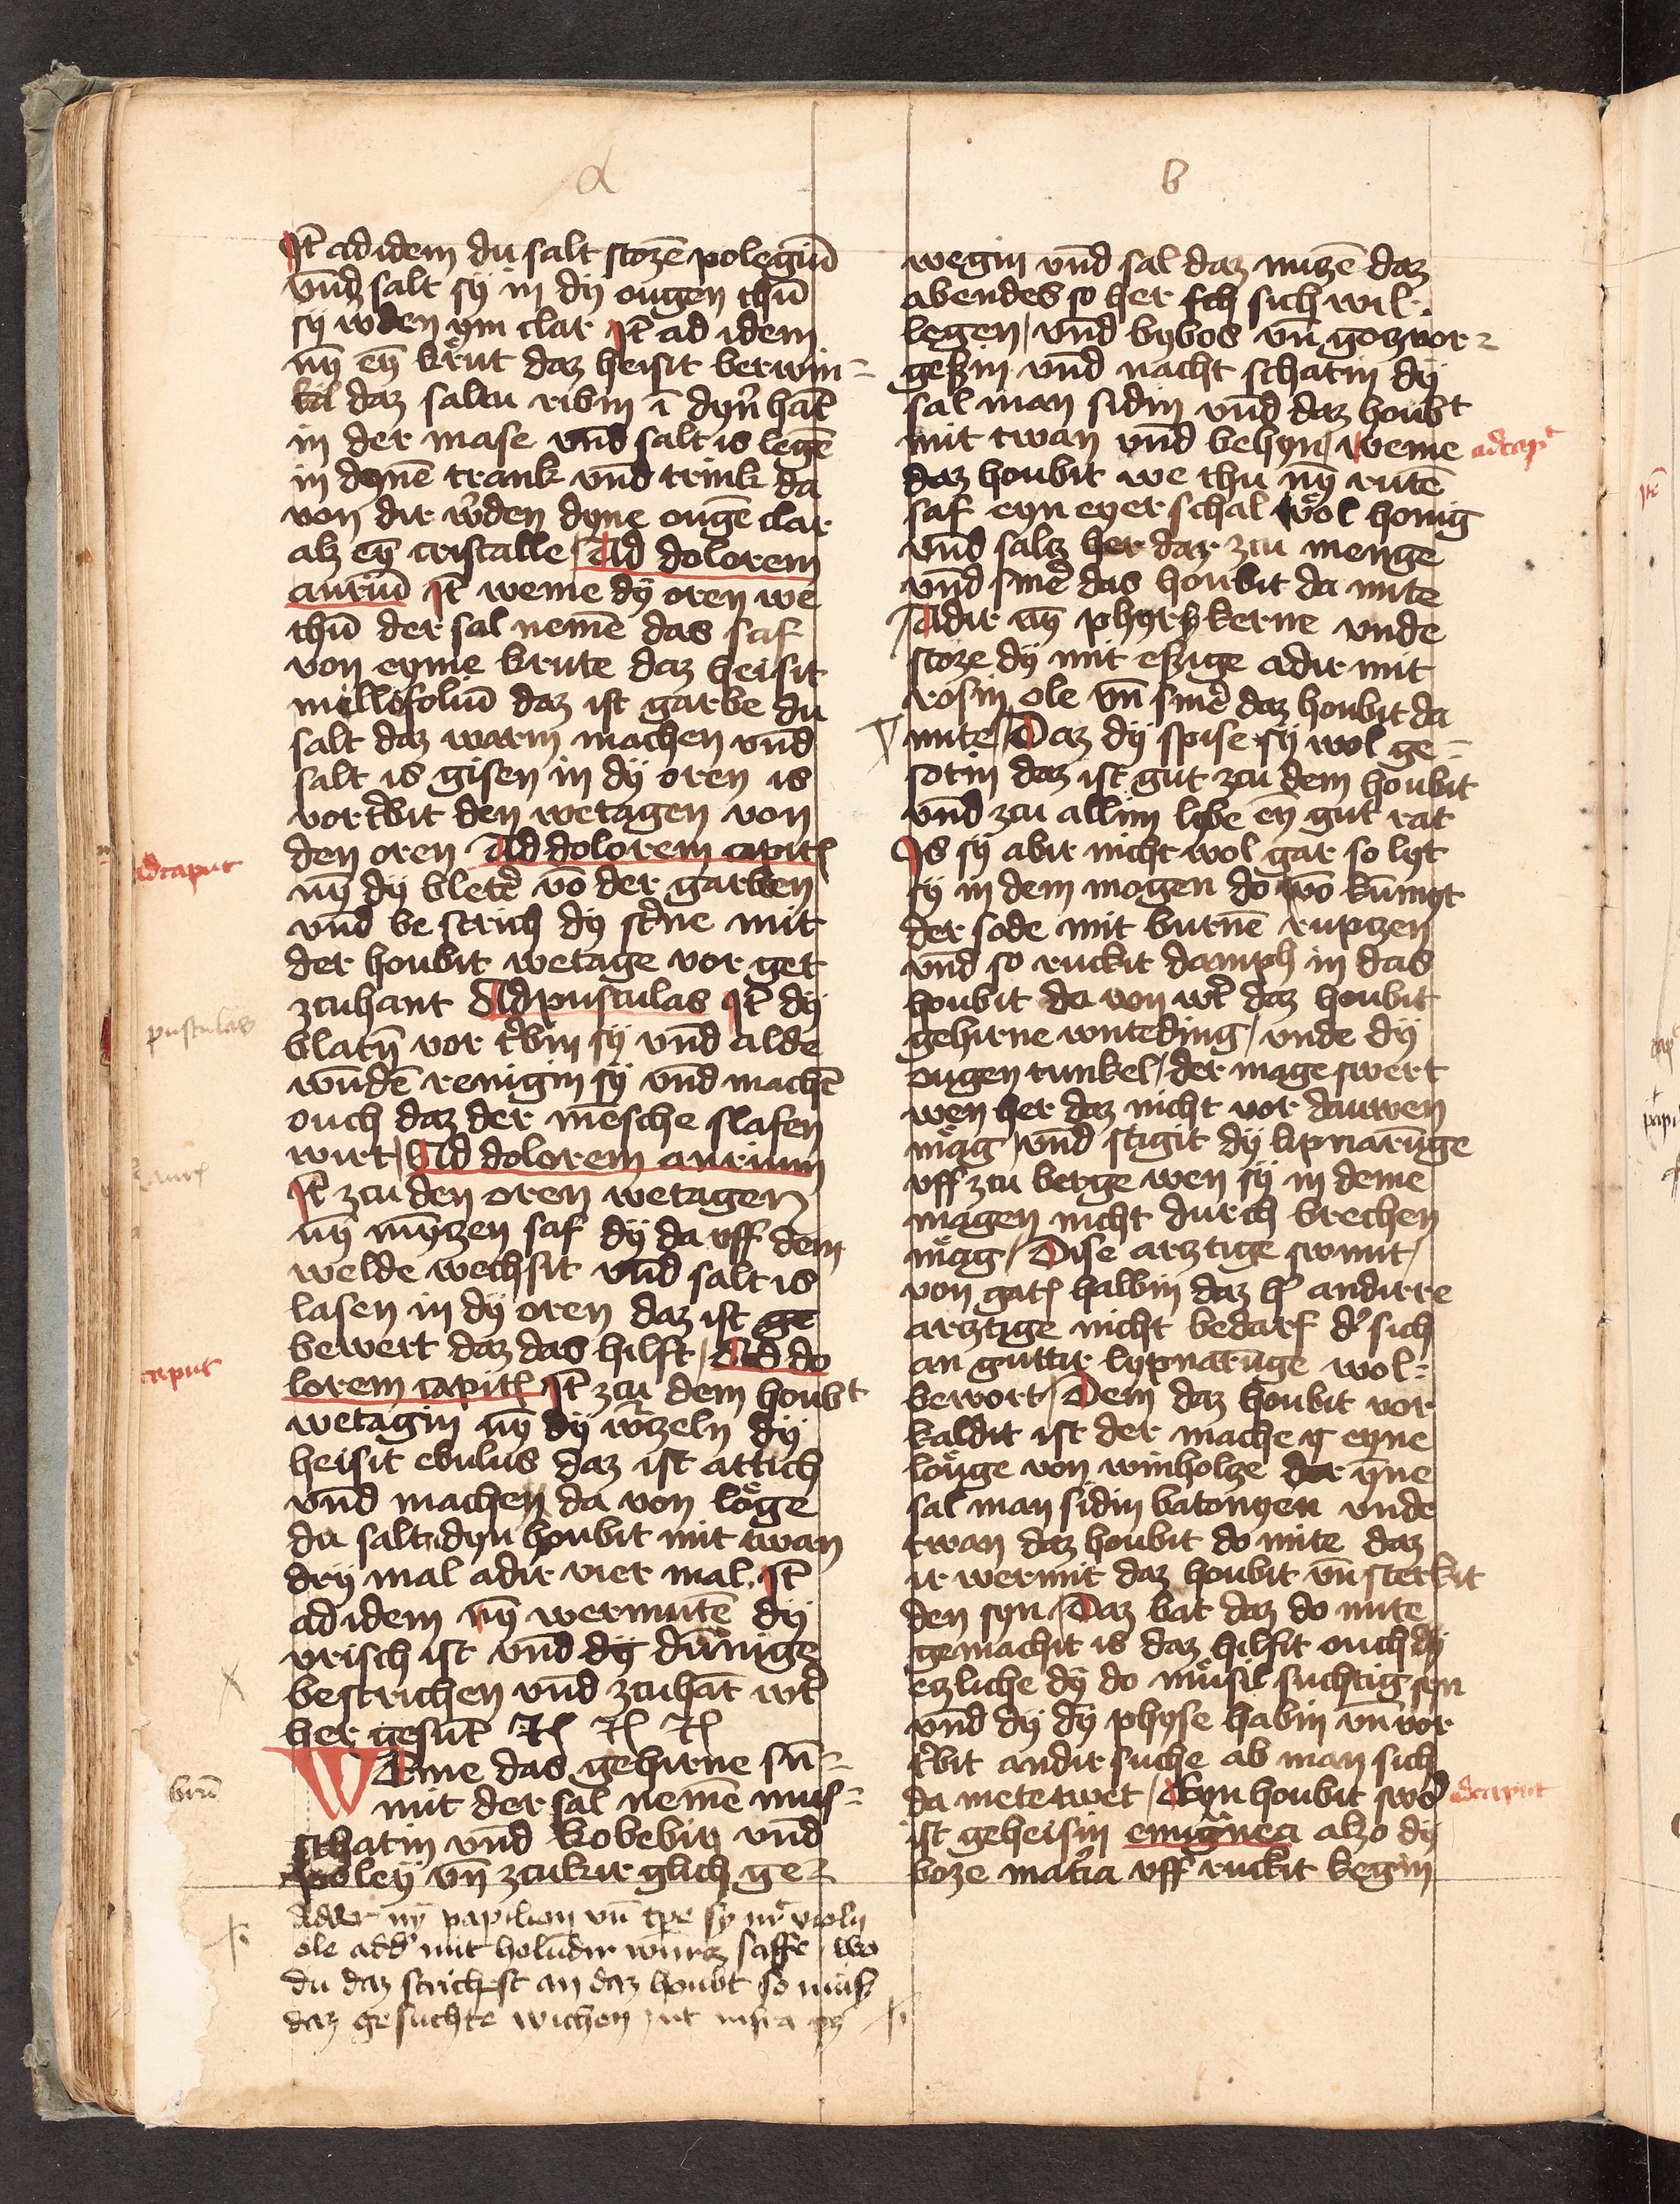 a
It̄ ad idem du salt stozē polegiū
vnd salt sy in dy ougen thū
sy wden ym clar It̄ ad idem
nȳ eȳ krut daz heisit berwin=
kil daz saltu ribin ī dyn̄ hāt
in der mase vnd salt is legē
in dynē trank vnd trink da
von dir w̄den dyne ougē clar
alz eȳ cristalle Ad dolorem
auriū It̄ weme dy oren we
thū der sal nemē das saf
von eyme krute daz heisit
millifoliū daz ist garbe du
salt daz warm machen vnd
salt is gisen in dy oren is
vortr̄bit den wetagen von
den oren Ad dolorem capit̄
nȳ dy blet̄ vō der garben
vnd be strich dy st̄ne mit
der houbit wetage vor get
zcuhant Ad pustulas It̄ dy
blatn̄ vor tr̄bin sy vnd alde
wundē renigin sy vnd machē
ouch daz der mēsche slafen
wirt Ad dolorem aurium
It̄ zcu den oren wetagen
nȳ mȳzen saf dy da vff dem
welde wechsit vnd salt is
lasen in dy oren daz ist ge
bewert daz das hilft Ad do
lorem capit̄ It̄ zcu dem houbt
wetagin nȳ dy w̄rzeln dy
heisit ebulus daz ist attich
vnd machen da von löge
du salt dyn houbit mit twan
dry mal adir vier mal It̄
ad idem nȳ wermutē dy
vrisch ist vnd dy dunige
bestrichen vnd zcuhāt wt̄
her gesūt
Weme das gehirne sū=
mit der sal nemē mus=
schatin vnd kobebin vnd
poley vn̄ zcukir glich ge=
adder nȳ papilion vn̄ sy violn
ole add̄ mit holundir wurz saffe wo
du daz strichest an daz houbt so mūs
daz gesuchte wichen ut infra
b
wegin vnd sal daz nuzē daz
abendes so her sch sich wil:
legen vnd bybos vn̄ gozvor=
geszin vnd nacht schatin dy
sal man sidin vnd daz houbt
mit twan vnd behyn weme
daz houbit we thu nȳ rutē
saf eyn eyer schal wol honig
vnd salz her dar zcu menge
vnd smer̄ das houbit da mite
Adir nȳ phyrszkerne vnde
stoze dy mit eszige adir mit
rosin ole vn̄ smer̄ daz houbit da
mite Daz dy spise sy wol ge=
sotin daz ist gut zcu dem houbit
vnd zcu allim libe en̄ gut rat
Is sy abir nicht wol gar so lyt
sy in dem mogen do vō kūmyt
der sode mit burnē rupzen
vnd so ruckit damph in das
houbit da von wt̄ daz houbit
gehirne wuteding vnde dy
ougen tunkel der mage swert
wen her daz nicht vor dauwen
mag vnd stigit dy lipnarūge
vff zcu berge wen sy in deme
magen nicht durch brechen
mag Dise arztige swmit
von gat̄ halbin daz h̄ andirre
arztige nicht bedarf d̄ sich
an guttir lypnarūge wol:
bewort Dem daz houbit vor
kaldit ist der mache ȳ eyne
louge von winholze dor ȳne
sal man sidin batonyen vnde
twan daz houbit do mite daz
ir wermit daz houbit vn̄ sterkit
den syn Daz bat daz do mite
gemachit is daz hilfit ouch dy
etzliche dy do musil suchtig syn
vnd dy dy physe habin vn̄ vor
tr̄bit andir suche ab man sich
da mete twet Eyn houbit swe
ist geheisin emigrnea alzo dy
boze matia vff ruckit kegin
ad caput
pustulas
caput
ad capt
ad caput